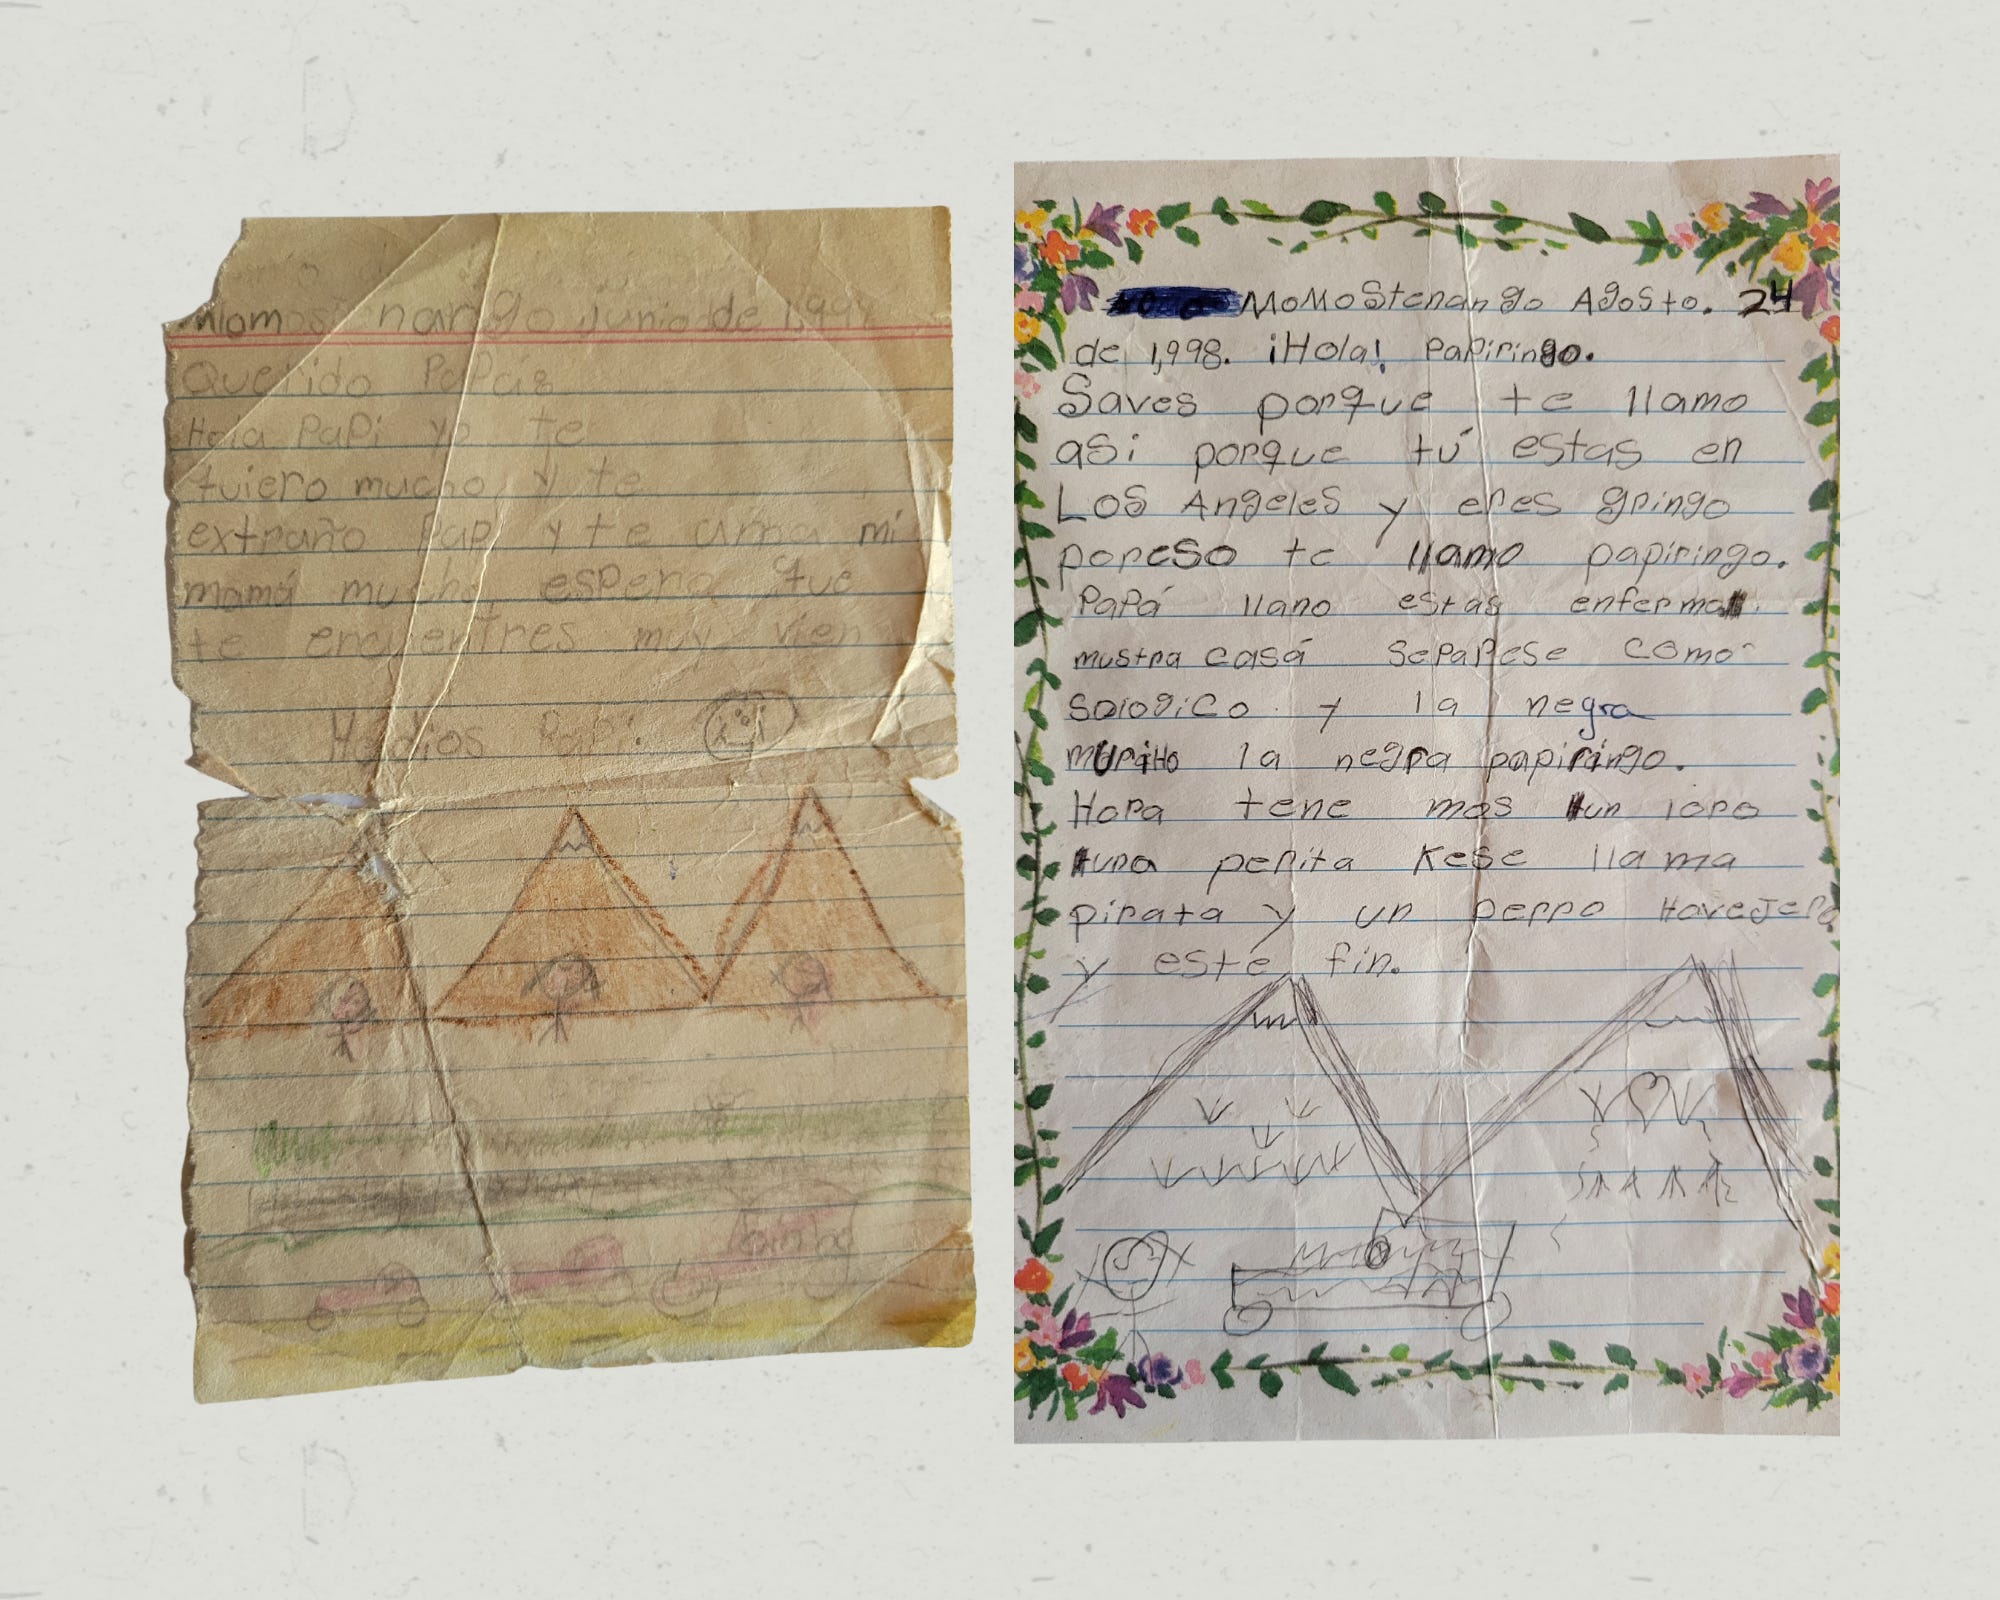 Momostenango junio de 1,99
Querido Papás
Hola Papi yo te
quiero mucho y te
extraño Papi y te ama mi
mamá mucho, espero que
te encuentres muy vien
Hadios Papi.
MoMoStenango Agosto. 24
de 1,998. ¡Hola! Papiringo.
Saves porque te llamo
asi porque tú estas en
Los Angeles y eres gringo
poreso te llamo papiringo.
Papá llano estas enferma
mustra casá seParese como
soiogico y la negra
muriHo la negra papiringo.
Hora tene mos un loro
una perita Kese llama
pirata y un perro Havejero
y este fin.